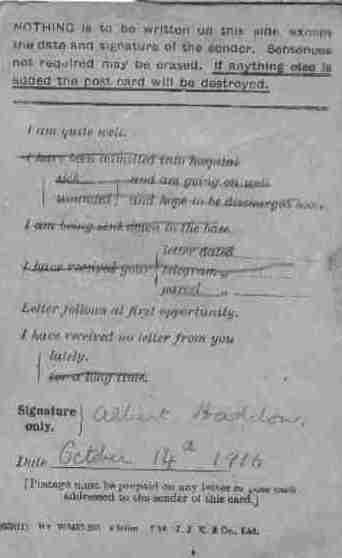 NOTHING is to be written on this side except
the date and signature of the sender. Sentences
not required may be erased. If anything else is
added the post card will be destroyed.
I am quite well.
I have been admitted into hospital
sick and am going on well.
wounded and hope to be discharged soon.
I am being sent down to the base.
letter dated
I have received your telegram „
parcel „
Letter follows at first opportunity.
I have received no letter from you
lately.
for a long time.
Signature only. Albert Haddow.
Date October 14th 1916
[Postage must be prepaid on any letter or post card
addressed to the sender of this card.]
& Co., Ltd.